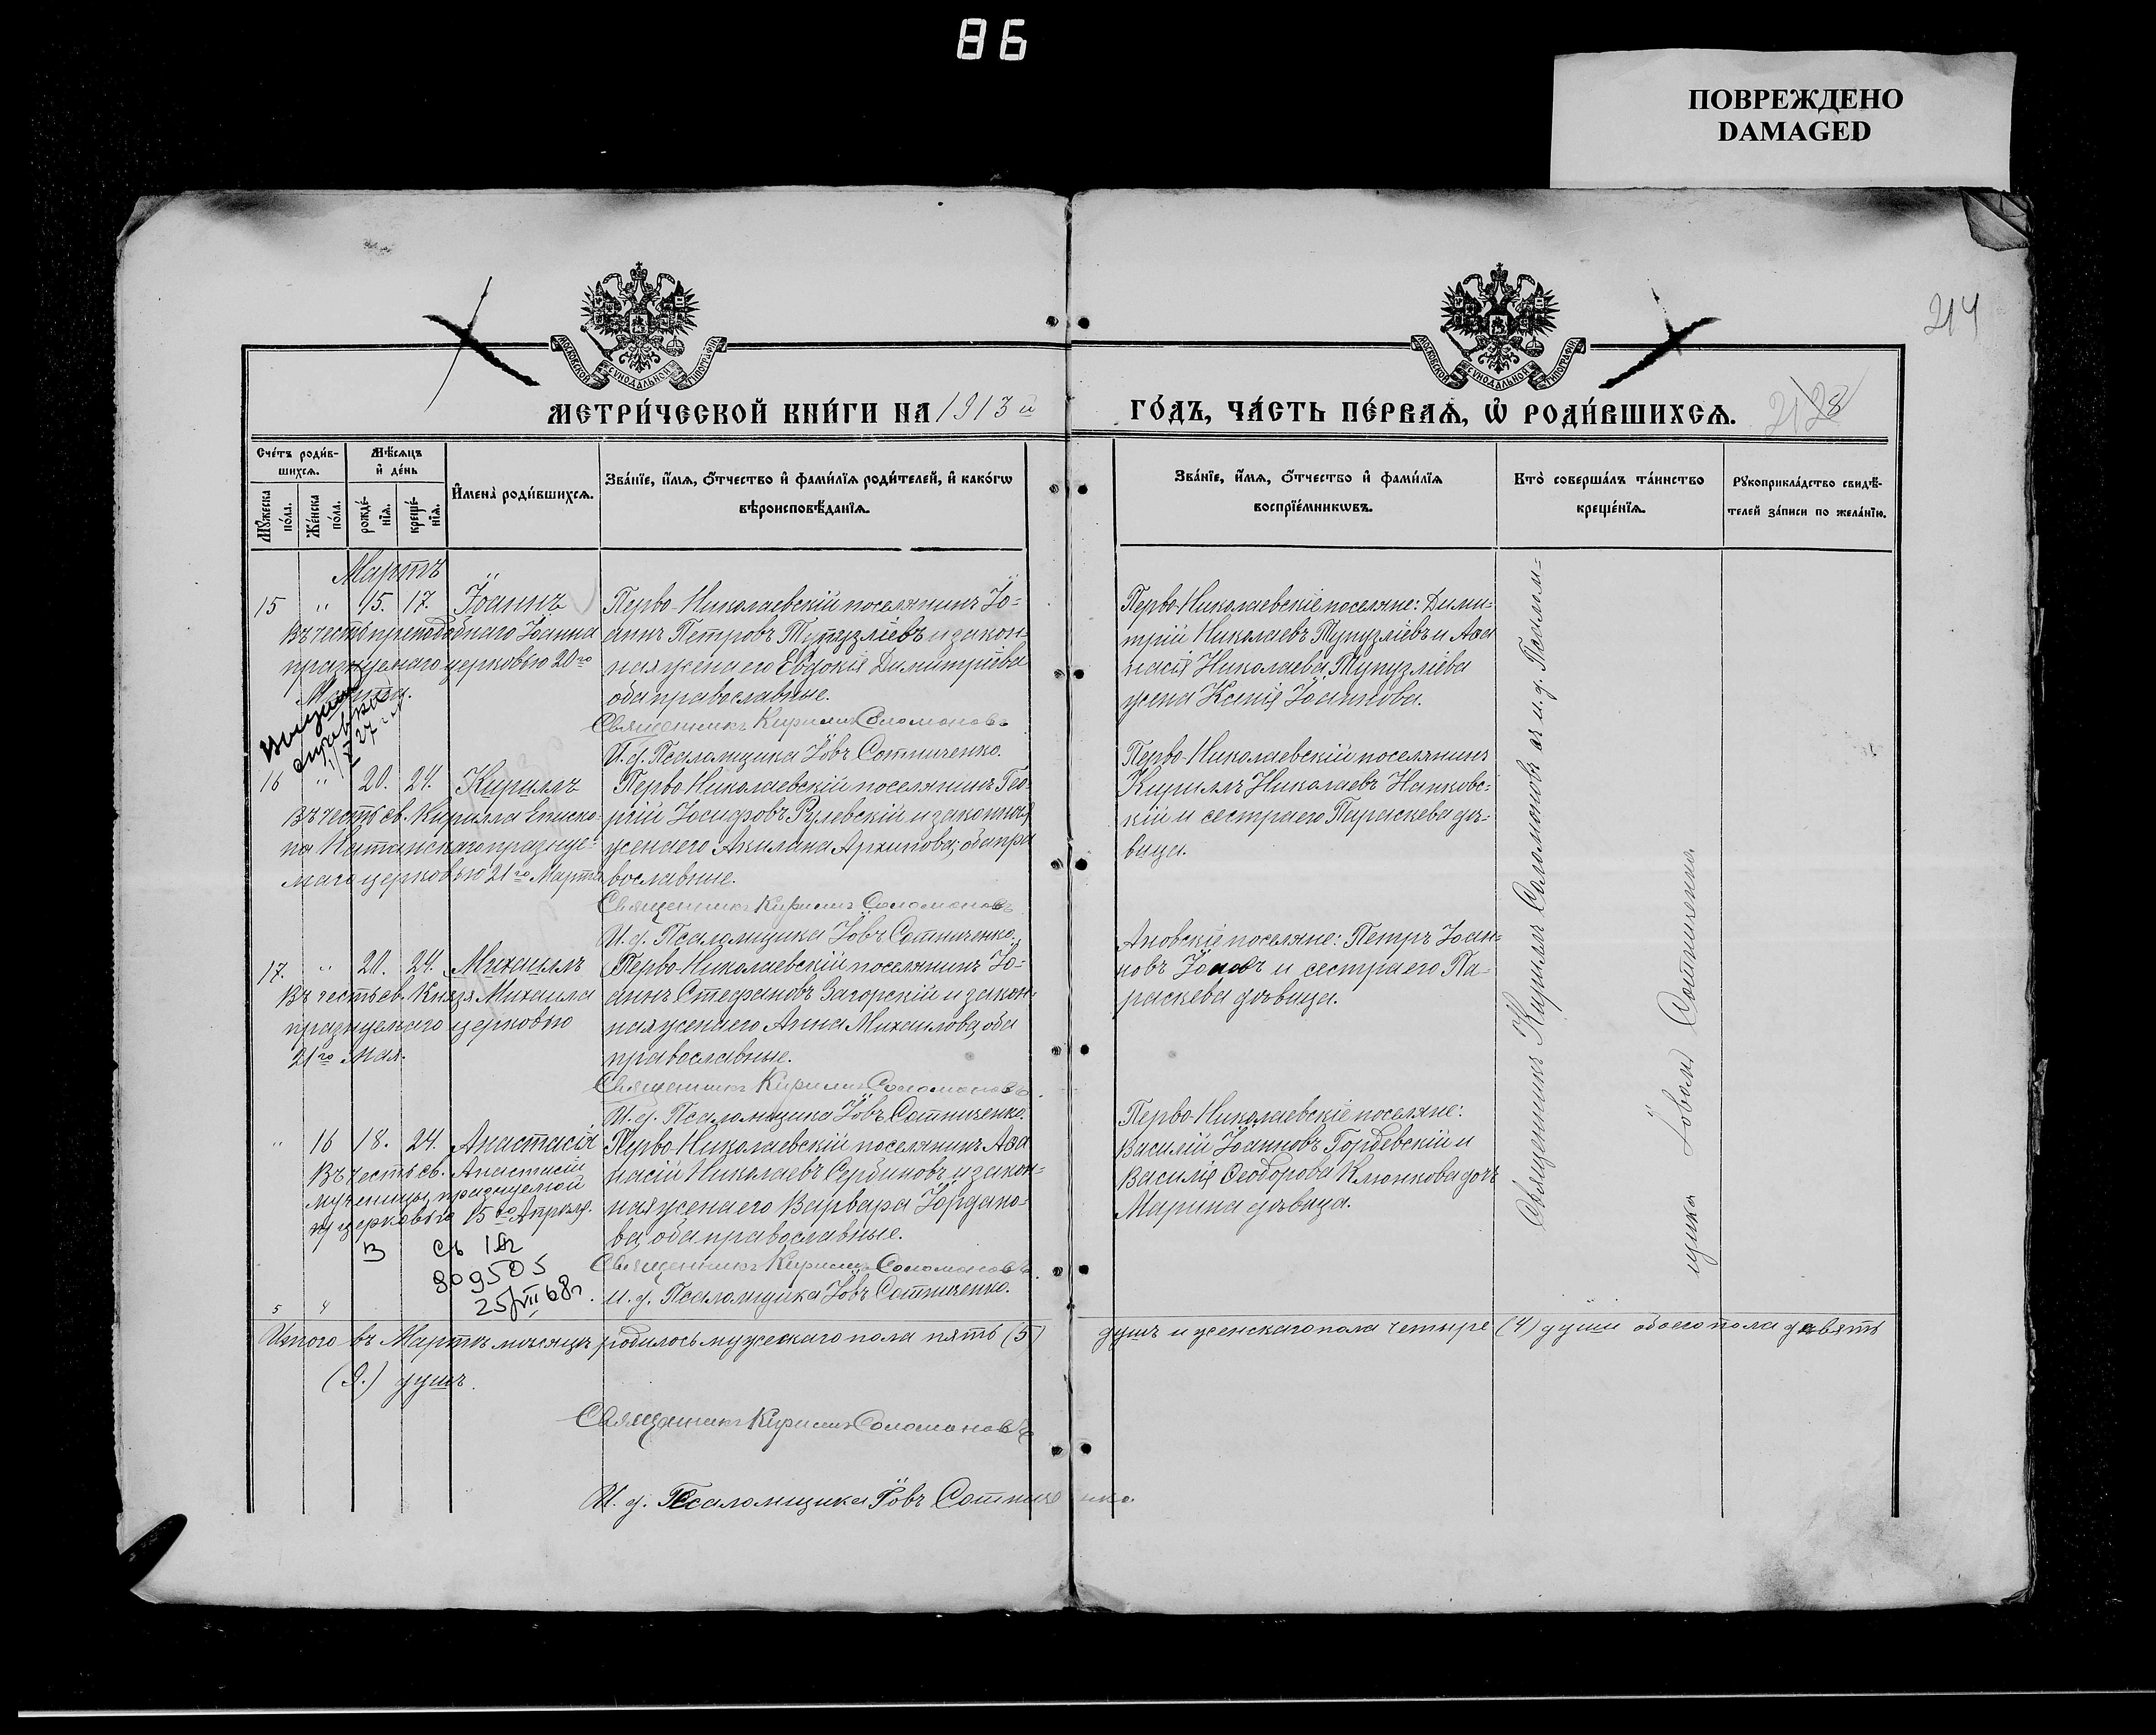 86
ПОВРЕЖДЕНО
DAMAGED
214
МОСКОВСКОЙ СѴНОДАЛЬНОЙ ТИПОГРАФІИ
МОСКОВСКОЙ СѴНОДАЛЬНОЙ ТИПОГРАФІИ
МЕТРИ́ЧЕСКОЙ КНИ́ГИ НА 1913 й
ГО́ДЪ, ЧА́СТЬ ПЕ́РВАѦ, Ѡ҆ РОДИ́ВШИХСѦ.
28
Сче́тъ роди́в-
шихсѧ.
Мꙋ́жеска по́ла.
Же́нска по́ла.
Мѣ́сѧцъ
и҆ де́нь
рожде́-
нїѧ.
креще́-
нїѧ.
И҆мена̀ роди́вшихсѧ.
Зва́нїе, и҆́мѧ, ѻ҆́тчество и҆ фами́лїѧ роди́телей, и҆ како́гѡ
вѣроисповѣ́данїѧ.
Зва́нїе, и҆́мѧ, ѻ҆́тчество и҆ фами́лїѧ
воспрїе́мникѡвъ.
Кто̀ соверша́лъ та́инство
креще́нїѧ.
Рꙋкоприкла́дство свидѣ́-
телей за́писи по жела́нїю.
Мартъ
15 " 15. 17. Іоаннъ
Въ честь преподобнаго Іоанна
празднуемаго церковью 20го
Марта.
Перво-Николаевскій поселянинъ Іо-
аннъ Петровъ Тупузліевъ и закон-
ная жена его Евдокія Димитріева
оба православные.
Священникъ Кириллъ Соломоновъ
И. д. Псаломщика Іовъ Сотниченко.
Перво-Николаевскіе поселяне: Дими-
трій Николаевъ Тупузліевъ и Аѳа
насія Николаева Тупузліева
жена Ксенія Іоаннова.
справка
27 г.
16 " 20. 24. Кириллъ
Въ честь св. Кирилла Еписко-
па Катанскаго праздну-
маго церковью 21го Марта
Перво-Николаевскій поселянинъ Гео-
ргій Іосифовъ Рулевскій и законная
жена его Акилина Архипова, оба пра
вославные.
Священникъ Кириллъ Соломоновъ
И. д. Псаломщика Іовъ Сотниченко.
Перво-Николаевскій поселянинъ
Кириллъ Николаевъ Нанковс-
кій и сестра его Параскева дѣ-
вица.
17. " 20. 24. Михаилъ
Въ честь св. Князя Михаила
празднуемаго церковью
21го Мая.
Перво-Николаевскій поселянинъ Іо-
аннъ Стефановъ Загорскій и закон-
ная жена его Анна Михаилова, оба
православные.
Священникъ Кириллъ Соломоновъ.
И. д. Псаломщика Іовъ Сотниченко.
поселяне: Петръ Іоан-
новъ и сестра его Па-
раскева дѣвица.
" 16 18. 24. Анастасія
Въ честь св. Анастасіи
мученицы, празднуемой
церковью 15го Апрѣля.
Перво-Николаевскій поселянинъ Аѳа
насій Николаевъ Сербиновъ и закон-
ная жена его Варвара Іордано-
ва, оба православные.
Священникъ Кириллъ Соломоновъ.
И. д. Псаломщика Іовъ Сотниченко.
Перво-Николаевскіе поселяне:
Василій Іоанновъ Гордевскій и
Василія Ѳеодорова Клюнкова дочь
Марина дѣвица.
809505
25/VII 68г.
Священникъ Кириллъ Соломоновъ съ и. д. Псалом-
щика Іовомъ Сотниченко.
5 4
Итого въ Мартѣ мѣсяцѣ родилось мужескаго пола пять (5) душъ и женскаго пола четыре (4) души обоего пола девять
(9.) душъ.
Священникъ Кириллъ Соломоновъ
И. д. Псаломщика Іовъ Сотниченко.